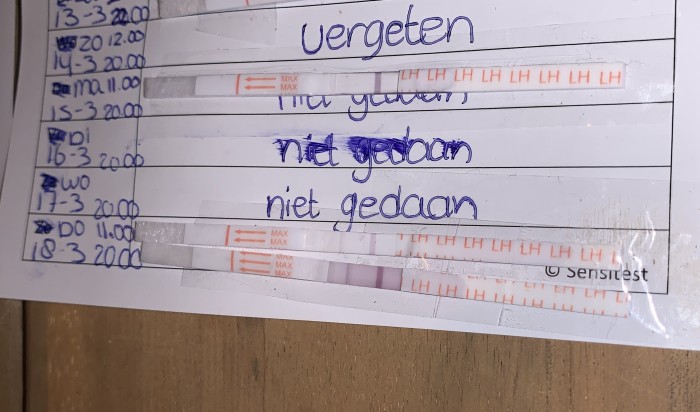 13-3 20.00
ZO 12.00 vergeten
14-3 20.00
ma 11.00 MAX MAX LH LH LH LH LH LH LH LH
15-3 20.00
DI
16-3 20.00 niet gedaan
WO
17-3 20.00 niet gedaan
DO 11.00 MAX MAX LH LH LH LH LH LH LH
18-3 20.00 MAX MAX
© Sensitest
LH LH LH LH LH LH LH